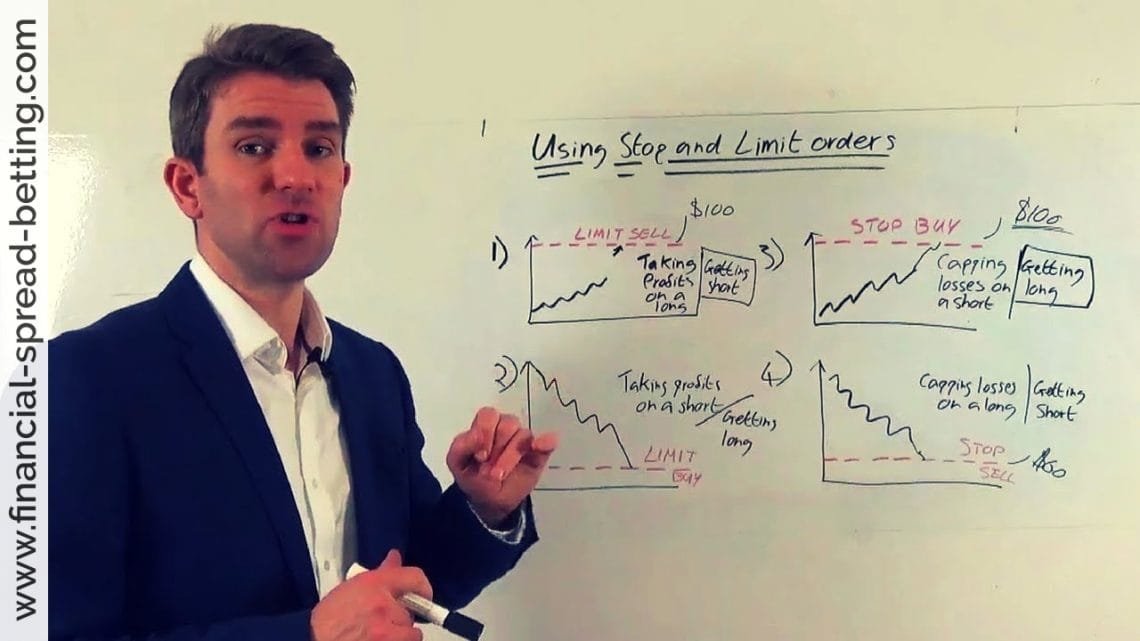 www.financial-spread-betting.com
Using Stop and Limit orders
1)
LIMIT SELL
$100
Taking
Profits
on a
long
Getting
short
3)
STOP BUY
$100
Capping
losses on
a short
Getting
long
2)
Taking profits
on a short
Getting
long
LIMIT
BUY
4)
Capping losses
on a long
Getting
Short
STOP
SELL